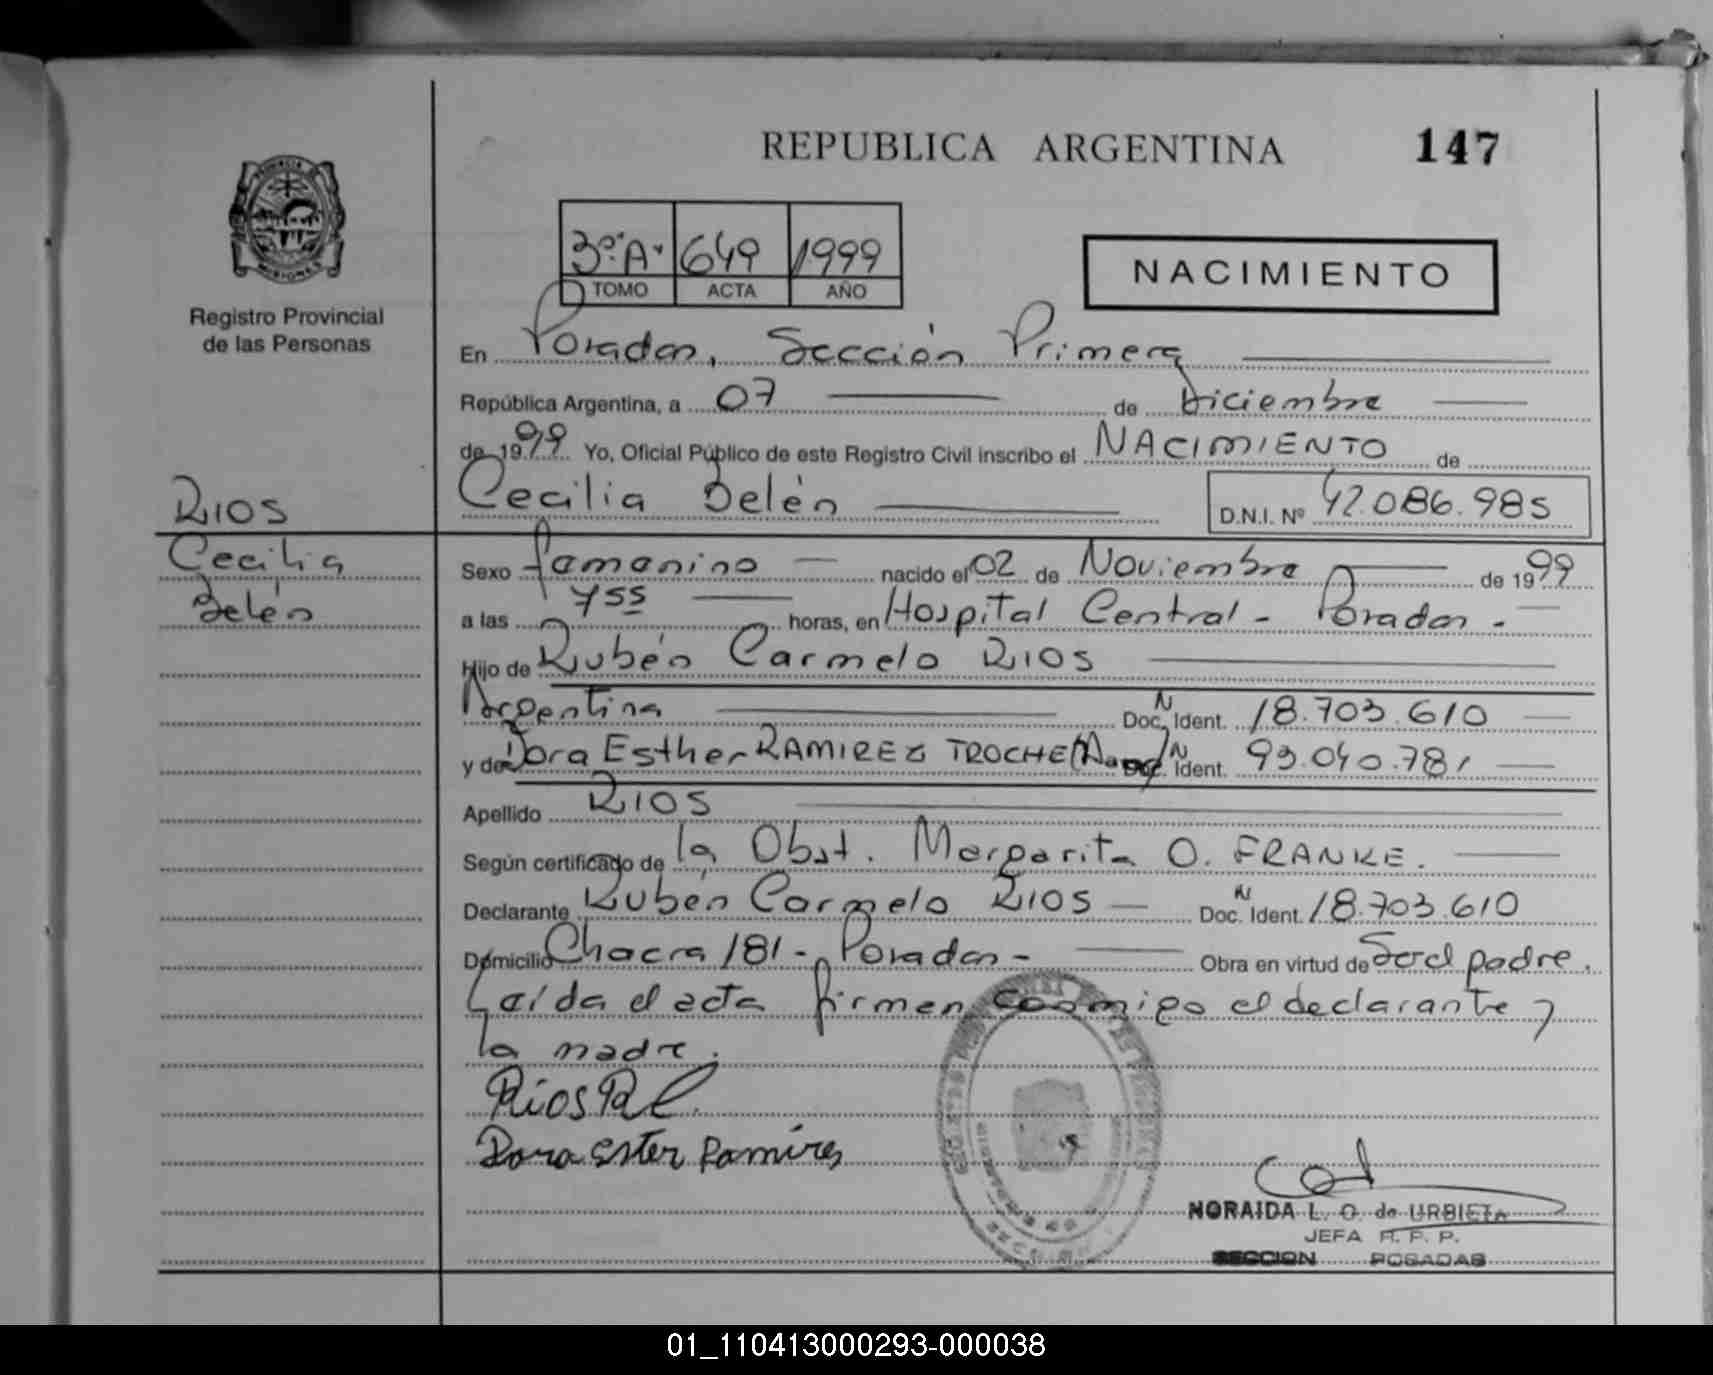 REPUBLICA ARGENTINA 147
3º A. 649 1999
TOMO ACTA AÑO
NACIMIENTO
Registro Provincial
de las Personas
En Posadas, Sección Primera
República Argentina, a 07 de Diciembre
de 1999 Yo, Oficial Público de este Registro Civil inscribo el NACIMIENTO de
Cecilia Belén D.N.I. Nº 42.086.985
RIOS
Cecilia
Belén
Sexo femenino nacido el 02 de Noviembre de 1999
a las 755 horas, en Hospital Central - Posadas -
Hijo de Rubén Carmelo RIOS
Argentina Doc. N Ident. 18.703.610
y de Dora Esther RAMIREZ TROCHE Doc. N Ident. 93.040.781
Apellido RIOS
Según certificado de la Obst. Margarita O. FRANKE.
Declarante Rubén Carmelo RIOS Doc. N Ident. 18.703.610
Domicilio Chacra 181 - Posadas - Obra en virtud de Ser el padre.
Leída el acta firman conmigo el declarante y
la madre.
Rios R
Dora Ester Ramires
NORAIDA L. O. de URBIETA
JEFA R. P. P.
SECCION POSADAS
01_110413000293-000038